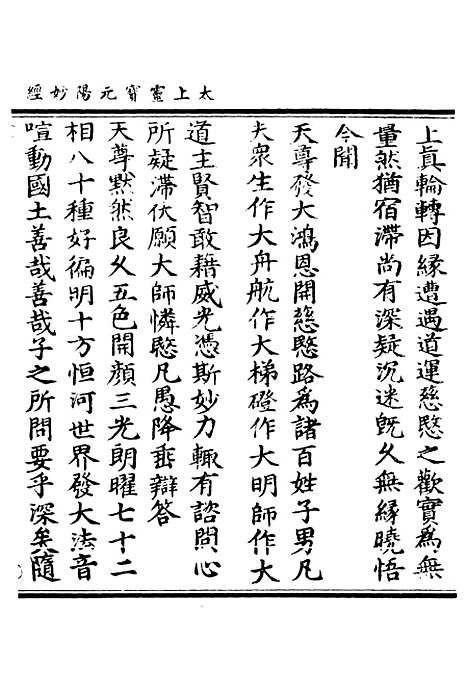 太上靈寳元陽妙經
上眞輪轉因緣遭遇道運慈愍之歡實爲無
量然猶宿滯尚有深疑沉迷旣久無緣曉悟
今聞
天尊發大鴻恩開慈愍路爲諸百姓子男凡
夫衆生作大舟航作大梯磴作大明師作大
道主賢智敢藉威光憑斯妙力輒有諮問心
所疑滯伏願大師憐愍凡愚降垂辯答
天尊默然良久五色開顏三光朗曜七十二
相八十種好徧明十方恒河世界發大法音
喧動國土善哉善哉子之所問要乎深矣隨